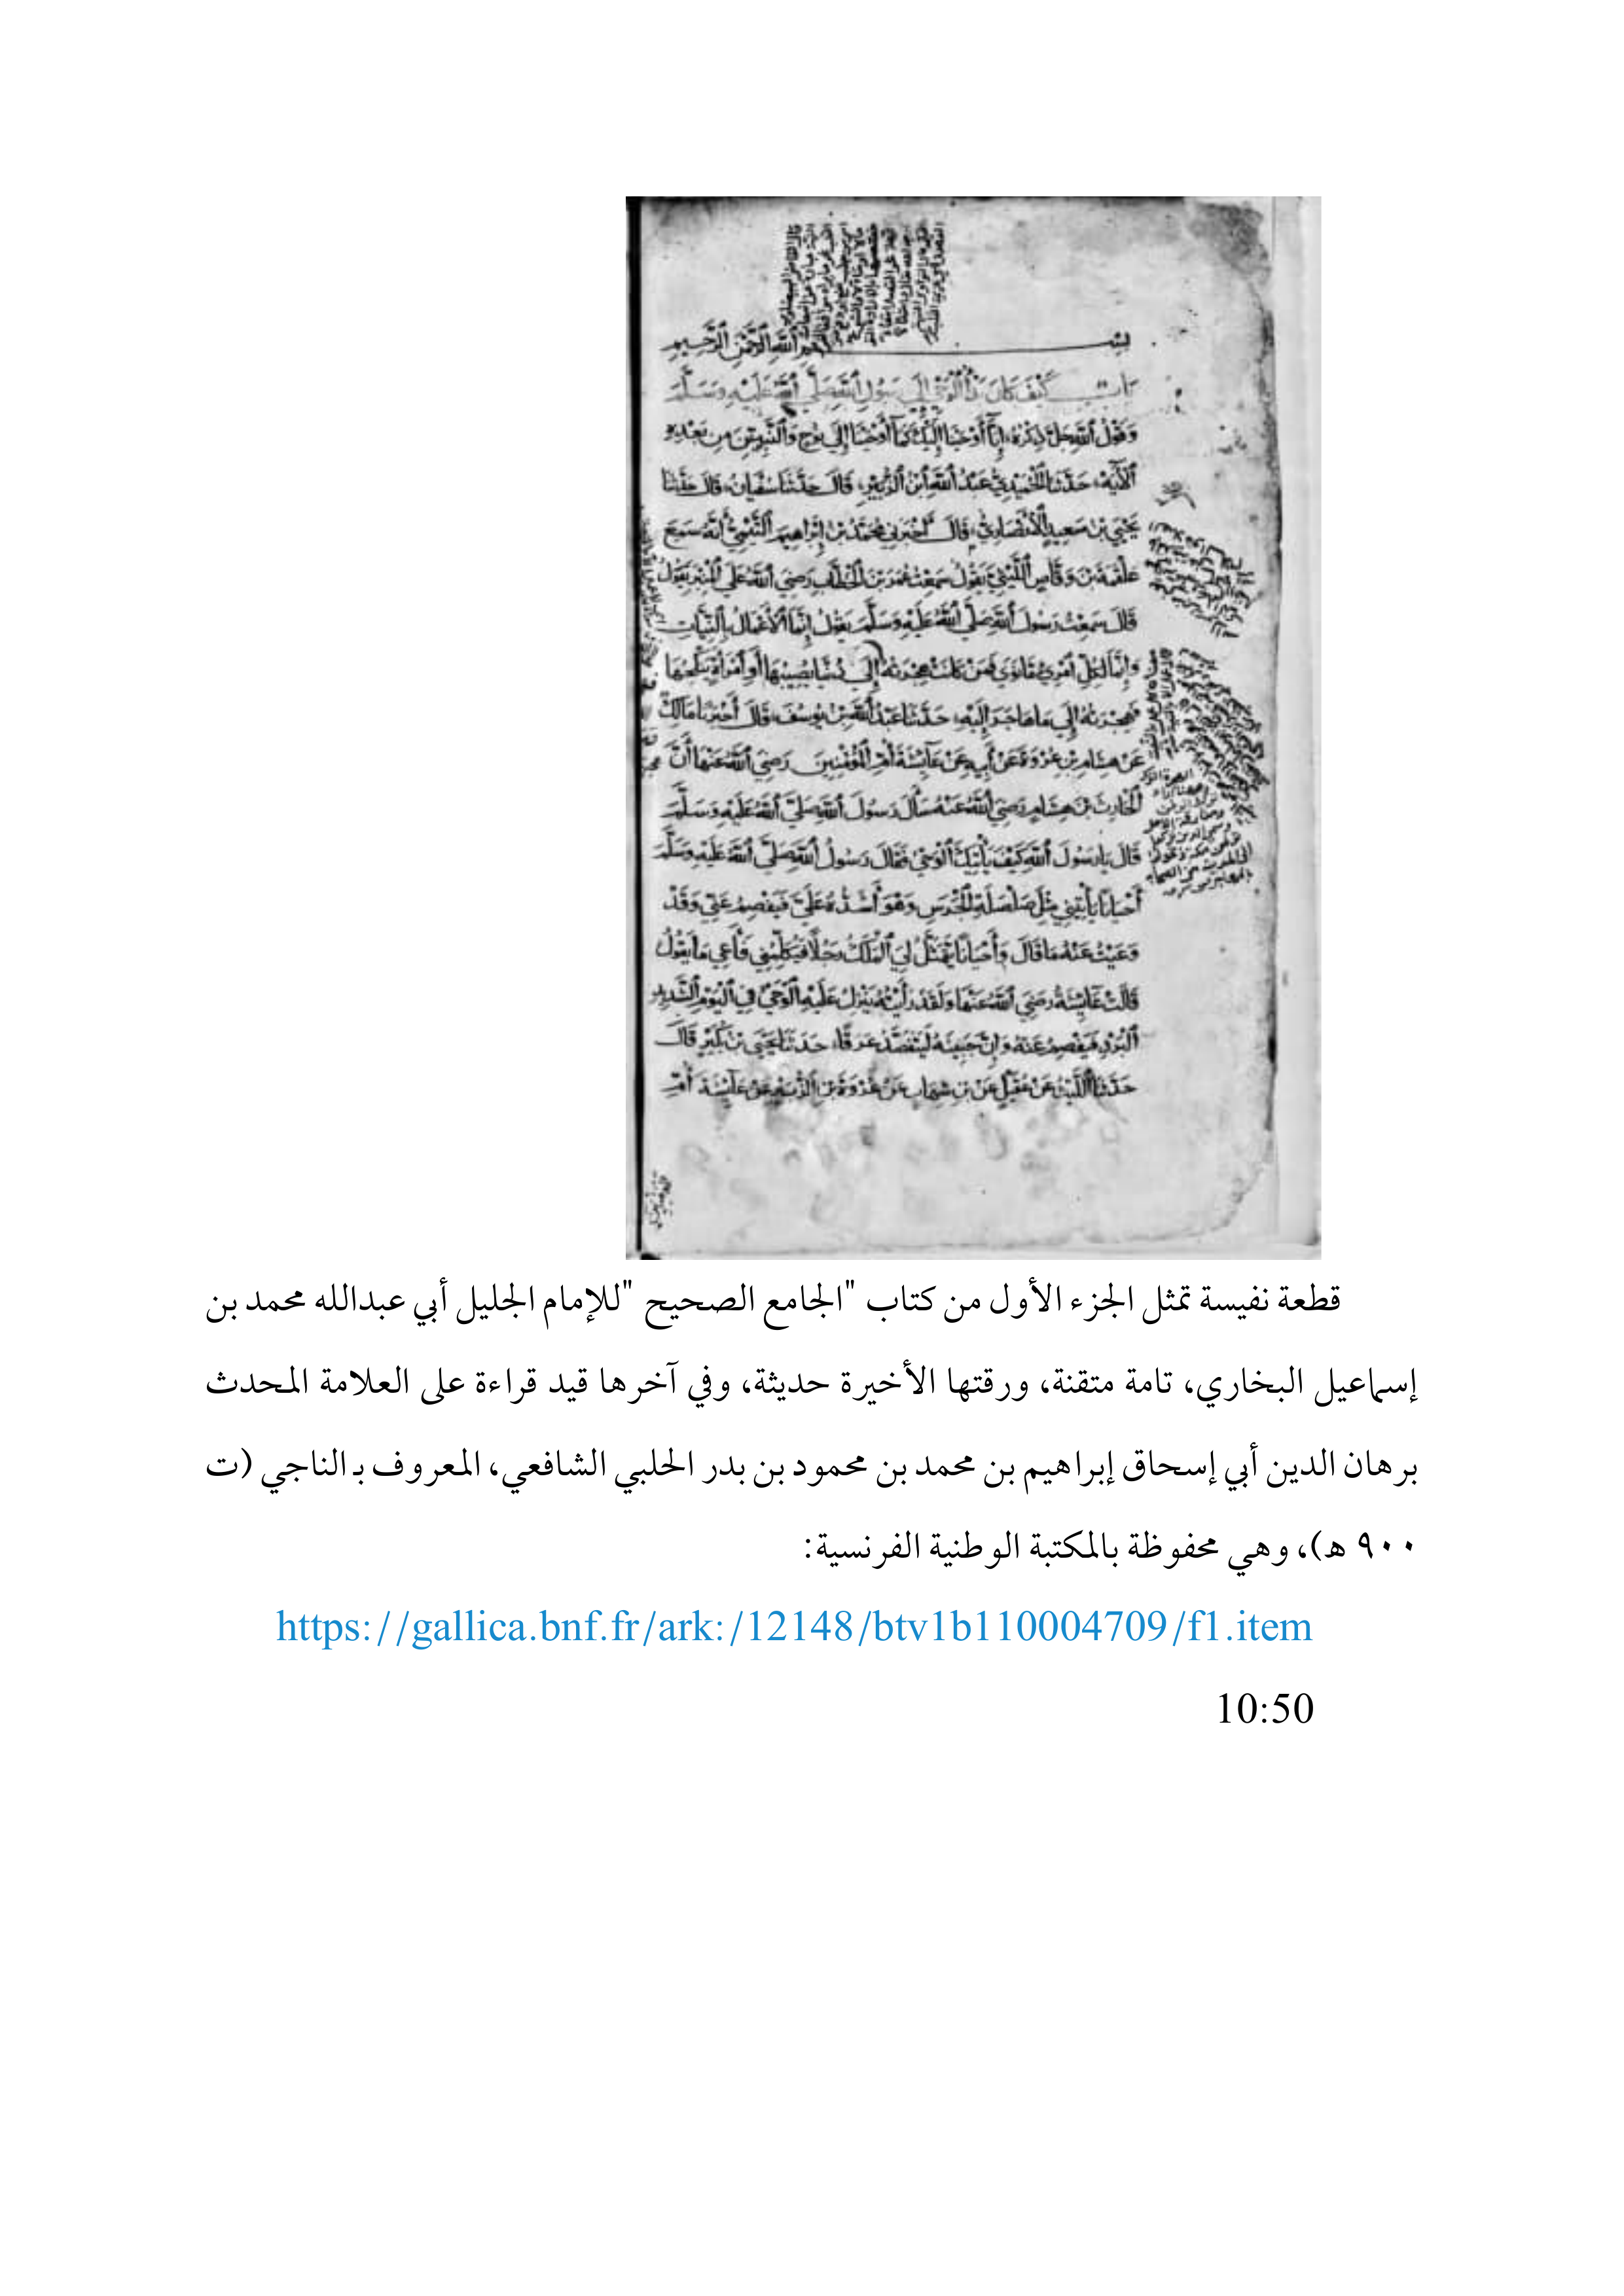 بسم الله الرحمن الرحيم
باب كَيْفَ كَانَ بَدْأُ الْوَحْيِ إِلَى رَسُولِ اللَّهِ صَلَّى اللَّهُ عَلَيْهِ وَسَلَّمَ
وَقَوْلُ اللَّهِ جَلَّ ذِكْرُهُ إِنَّا أَوْحَيْنَا إِلَيْكَ كَمَا أَوْحَيْنَا إِلَى نُوحٍ وَالنَّبِيِّينَ مِنْ بَعْدِهِ
الْآيَةَ حَدَّثَنَا الْحُمَيْدِيُّ عَبْدُ اللَّهِ ابْنُ الزُّبَيْرِ، قَالَ حَدَّثَنَا سُفْيَانُ، قَالَ حَدَّثَنَا
يَحْيَى بْنُ سَعِيدٍ الْأَنْصَارِيُّ، قَالَ أَخْبَرَنِي مُحَمَّدُ بْنُ إِبْرَاهِيمَ التَّيْمِيُّ أَنَّهُ سَمِعَ
عَلْقَمَةَ بْنَ وَقَّاصٍ اللَّيْثِيَّ يَقُولُ سَمِعْتُ عُمَرَ بْنَ الْخَطَّابِ رَضِيَ اللَّهُ عَلَى الْمِنْبَرِ يَقُولُ
قَالَ سَمِعْتُ رَسُولَ اللَّهِ صَلَّى اللَّهُ عَلَيْهِ وَسَلَّمَ يَقُولُ إِنَّمَا الْأَعْمَالُ بِالنِّيَّاتِ
وَإِنَّمَا لِكُلِّ امْرِئٍ مَا نَوَى فَمَنْ كَانَتْ هِجْرَتُهُ إِلَى دُنْيَا يُصِيبُهَا أَوِ امْرَأَةٍ يَنْكِحُهَا
فَهِجْرَتُهُ إِلَى مَا هَاجَرَ إِلَيْهِ، حَدَّثَنَا عَبْدُ اللَّهِ بْنُ يُوسُفَ، قَالَ أَخْبَرَنَا مَالِكٌ
عَنْ هِشَامِ بْنِ عُرْوَةَ عَنْ أَبِيهِ عَنْ عَائِشَةَ أُمِّ الْمُؤْمِنِينَ رَضِيَ اللَّهُ عَنْهَا أَنَّ
الْحَارِثَ بْنَ هِشَامٍ رَضِيَ اللَّهُ عَنْهُ سَأَلَ رَسُولَ اللَّهِ صَلَّى اللَّهُ عَلَيْهِ وَسَلَّمَ
قَالَ يَا رَسُولَ اللَّهِ كَيْفَ يَأْتِيكَ الْوَحْيُ فَقَالَ رَسُولُ اللَّهِ صَلَّى اللَّهُ عَلَيْهِ وَسَلَّمَ
أَحْيَانًا يَأْتِينِي مِثْلَ صَلْصَلَةِ الْجَرَسِ وَهُوَ أَشَدُّهُ عَلَيَّ فَيَفْصِمُ عَنِّي وَقَدْ
وَعَيْتُ عَنْهُ مَا قَالَ وَأَحْيَانًا يَتَمَثَّلُ لِيَ الْمَلَكُ رَجُلًا فَيُكَلِّمُنِي فَأَعِي مَا يَقُولُ
قَالَتْ عَائِشَةُ رَضِيَ اللَّهُ عَنْهَا وَلَقَدْ رَأَيْتُهُ يَنْزِلُ عَلَيْهِ الْوَحْيُ فِي الْيَوْمِ الشَّدِيدِ
الْبَرْدِ فَيَفْصِمُ عَنْهُ وَإِنَّ جَبِينَهُ لَيَتَفَصَّدُ عَرَقًا، حَدَّثَنَا يَحْيَى بْنُ بُكَيْرٍ قَالَ
حَدَّثَنَا اللَّيْثُ عَنْ عُقَيْلٍ عَنْ بْنِ شِهَابٍ عَنْ عُرْوَةَ بْنِ الزُّبَيْرِ عَنْ عَائِشَةَ أُمِّ
قطعة نفيسة تمثل الجزء الأول من كتاب "الجامع الصحيح "للإمام الجليل أبي عبدالله محمد بن
إسماعيل البخاري، تامة متقنة، ورقتها الأخيرة حديثة، وفي آخرها قيد قراءة على العلامة المحدث
برهان الدين أبي إسحاق إبراهيم بن محمد بن محمود بن بدر الحلبي الشافعي، المعروف بـ الناجي (ت
٩٠٠ هـ)، وهي محفوظة بالمكتبة الوطنية الفرنسية:
https://gallica.bnf.fr/ark:/12148/btv1b110004709/f1.item
10:50